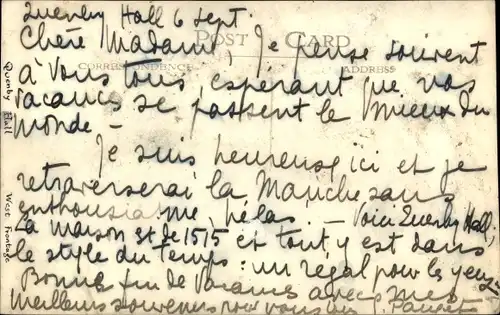 Quenby Hall 6 sept.
Chère Madame, Je pense souvent
POST CARD
CORRESPONDENCE ADDRESS
à vous tous, espérant que vos
vacances se passent le mieux du
monde -
Je suis heureuse ici et je
retraverserai la Manche sans
enthousiasme, hélas. - Voici Quenby Hall.
La maison est de 1515 et tout y est dans
le style du temps : un régal pour les yeux
Bonne fin de vacances avec mes
meilleurs souvenirs pour vous
Quenby Hall
West Frontage